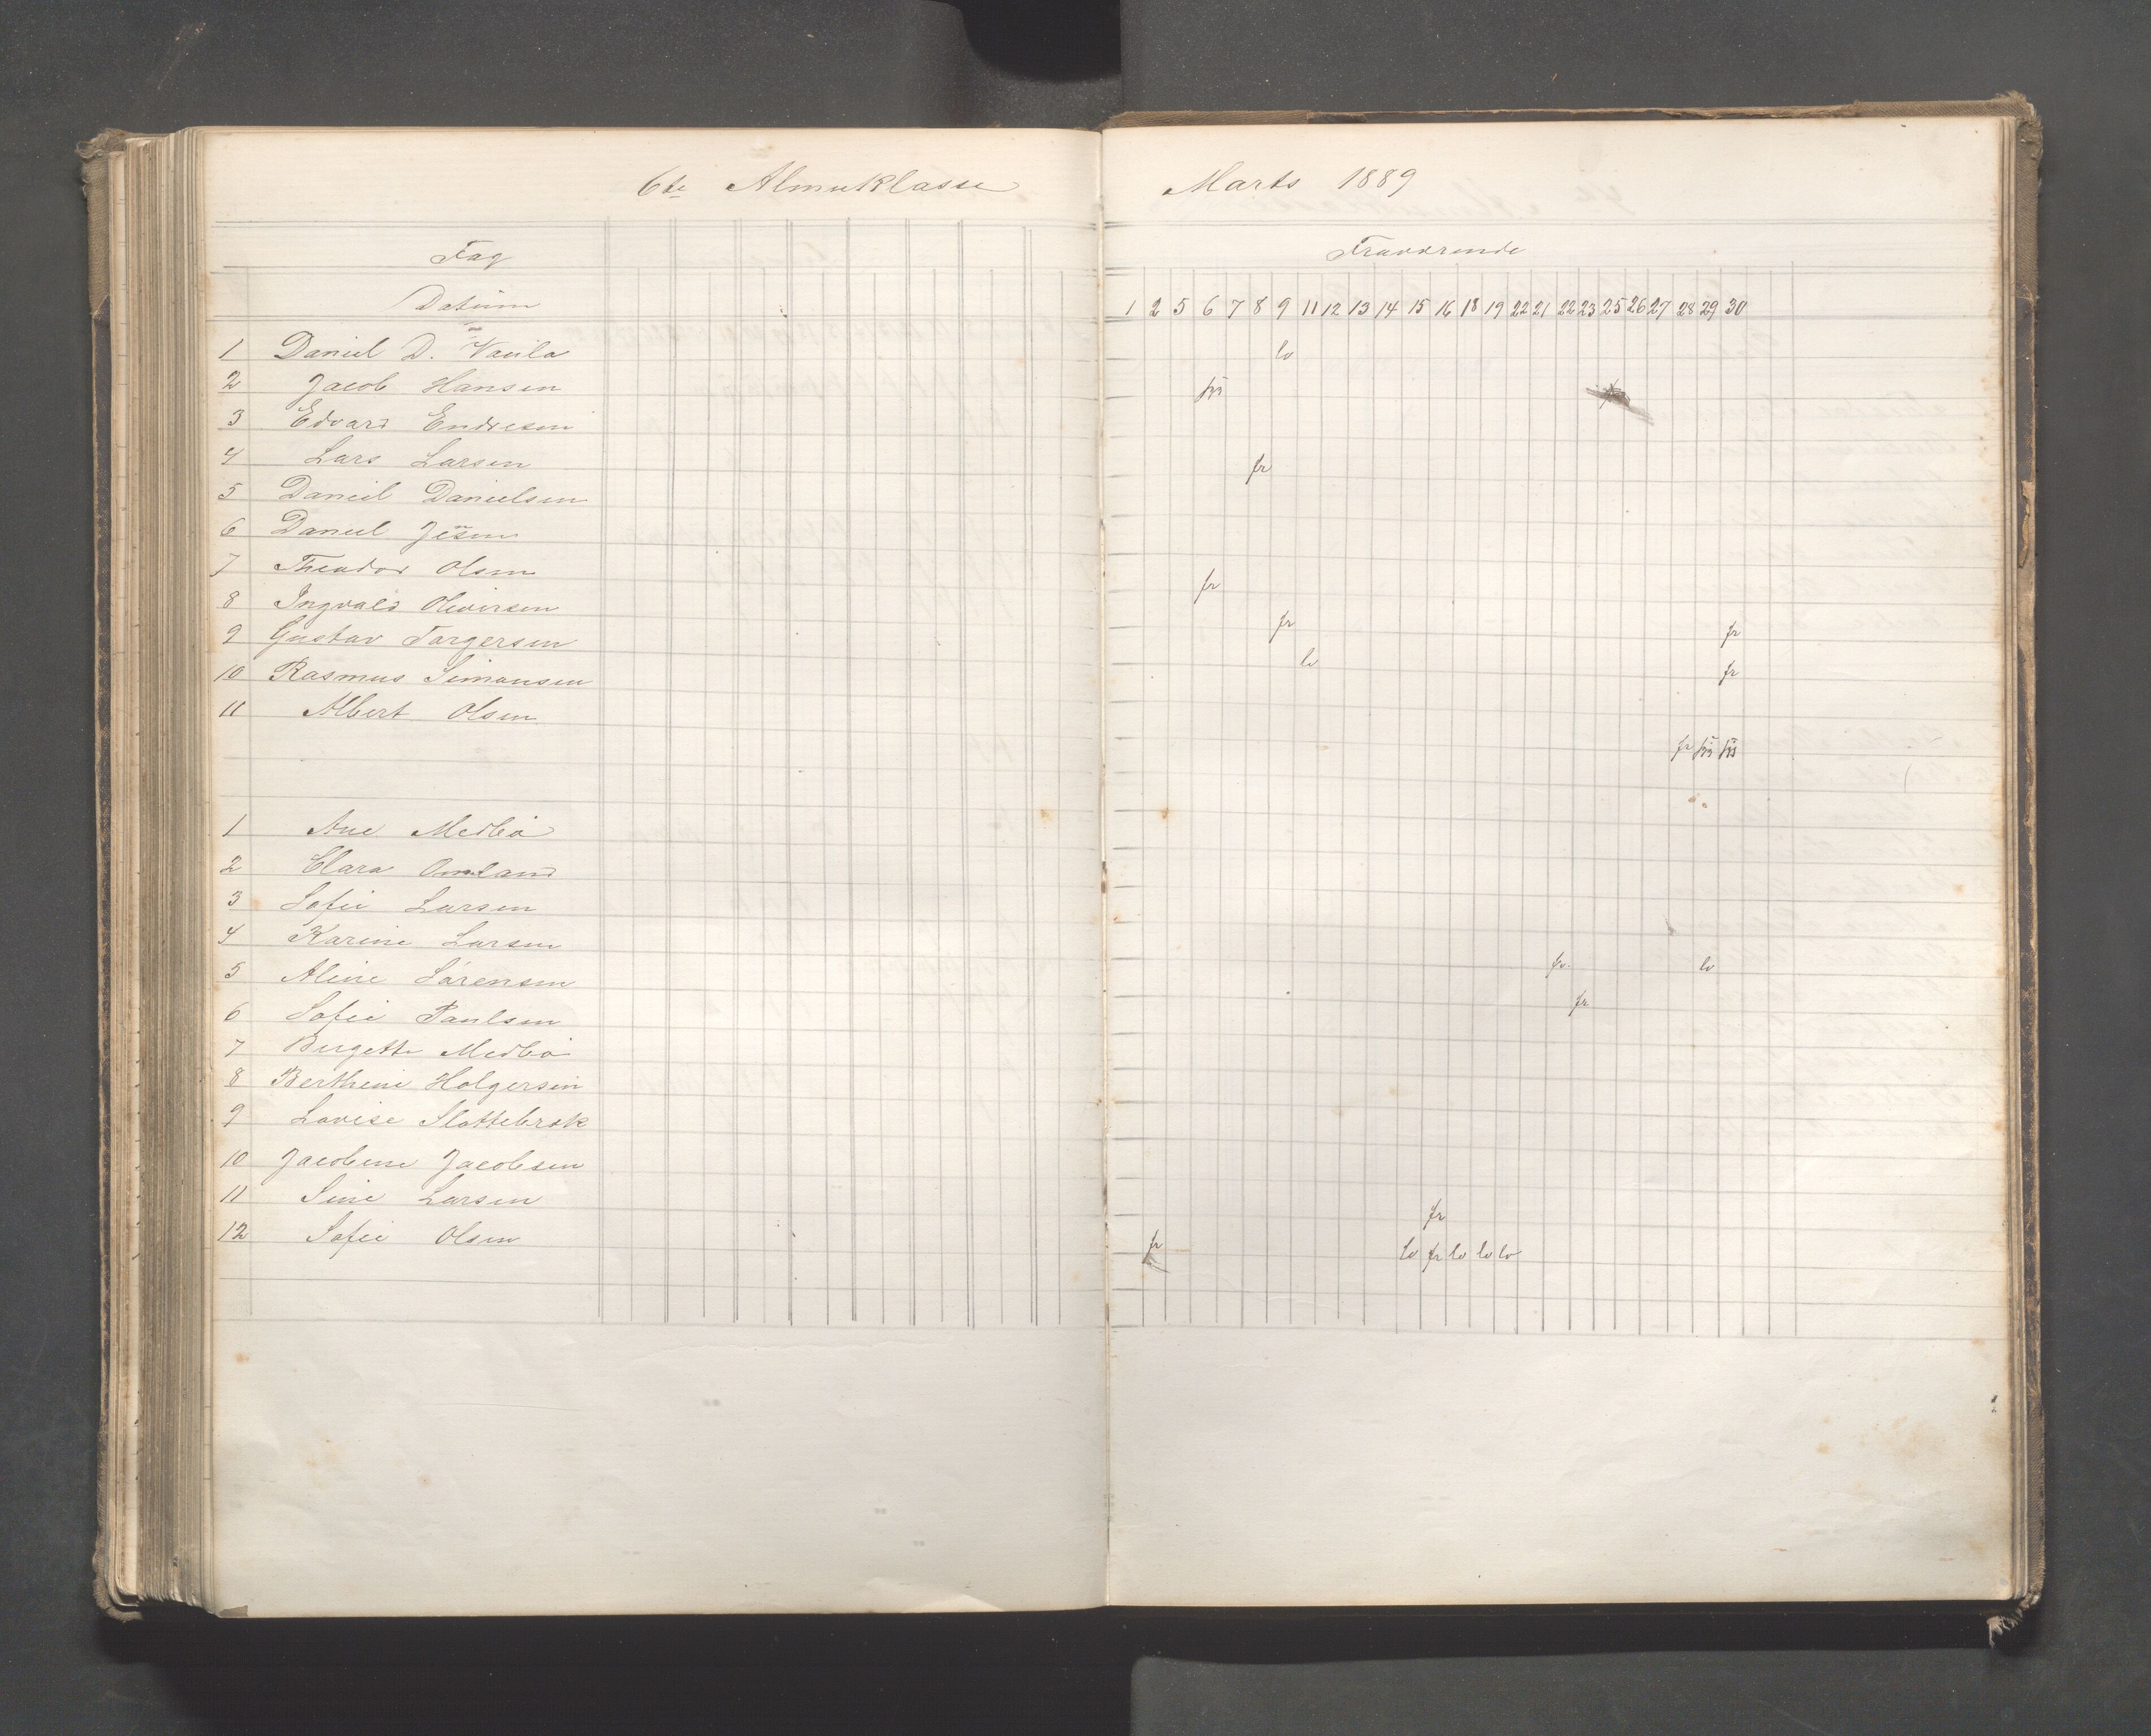 6te Almuklasse
Marts 1889
Fag
Fraværende
Datum
1 2 5 6 7 8 9 11 12 13 14 15 16 18 19 22 21 22 23 25 26 27 28 29 30
1 Daniel D. Vaula lo
2 Jacob Hansen
3 Edvard Endresen
4 Lars Larsen fr
5 Daniel Danielsen
6 Daniel
7 Theodor Olsen fr
8 Ingvald Oleversen fr fr
9 Gustav Torgersen lo fr
10 Rasmus Simonsen
11 Albert Olsen fr
1 Ane Medbø
2 Clara Omland
3 Sofie Larsen
4 Karine Larsen fr. lo
5 Aline Sørensen fr
6 Sofie Paulsen
7 Bergette Medbø
8 Berthine Holgersen
9 Lovise Slottebrøk
10 Jacobine Jacobsen
11 Sine Larsen fr
12 Sofie Olsen fr lo fr lo lo lo